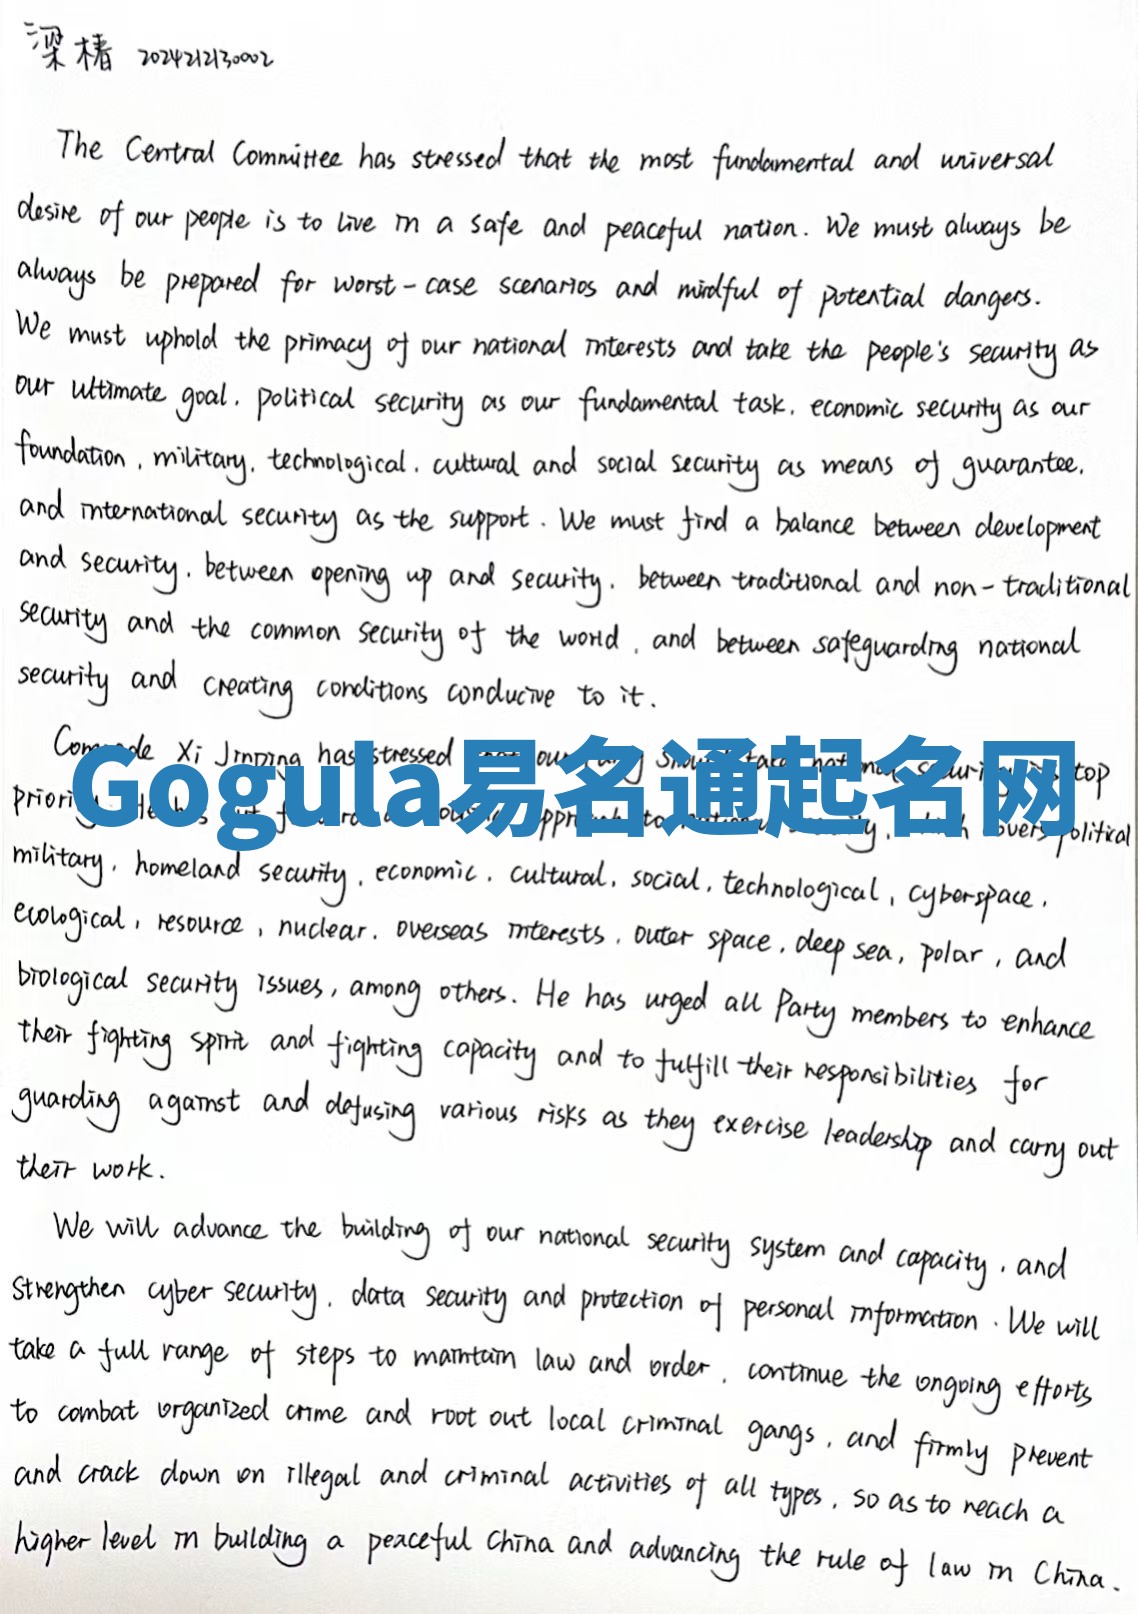 梁椿 2024212130002
The Central Committee has stressed that the most fundamental and universal
desire of our people is to live in a safe and peaceful nation. We must always be
always be prepared for worst-case scenarios and mindful of potential dangers.
We must uphold the primacy of our national interests and take the people's security as
our ultimate goal, political security as our fundamental task, economic security as our
foundation, military, technological, cultural and social security as means of guarantee,
and international security as the support. We must find a balance between development
and security, between opening up and security, between traditional and non-traditional
security and the common security of the world, and between safeguarding national
security and creating conditions conducive to it.
Comrade Xi Jinping has stressed our should take national security top
Gogula易名通起名网
priority. to political
military, homeland security, economic, cultural, social, technological, cyberspace,
ecological, resource, nuclear, overseas interests, outer space, deep sea, polar, and
biological security issues, among others. He has urged all Party members to enhance
their fighting spirit and fighting capacity and to fulfill their responsibilities for
guarding against and defusing various risks as they exercise leadership and carry out
their work.
We will advance the building of our national security system and capacity, and
strengthen cyber security, data security and protection of personal information. We will
take a full range of steps to maintain law and order, continue the ongoing efforts
to combat organized crime and root out local criminal gangs, and firmly prevent
and crack down on illegal and criminal activities of all types, so as to reach a
higher level in building a peaceful China and advancing the rule of law in China.